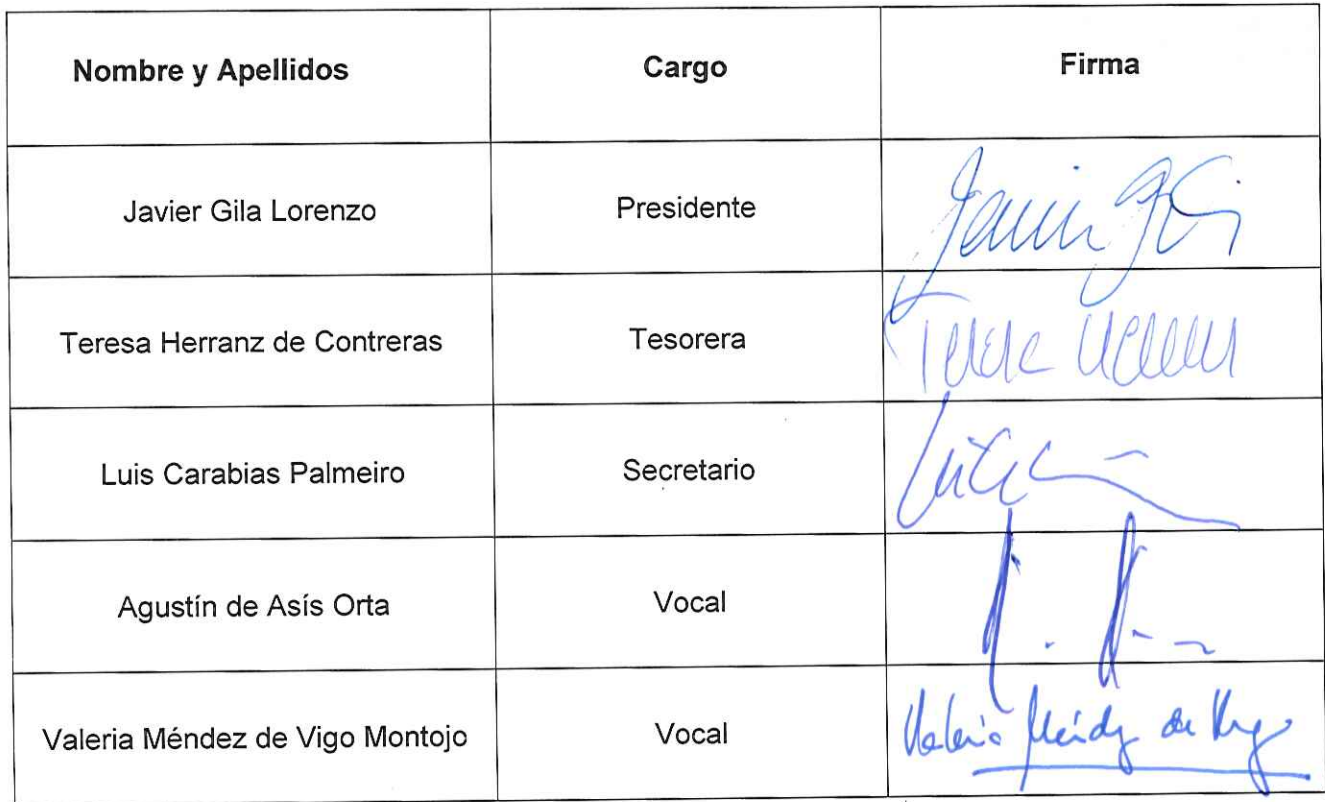 Nombre y Apellidos Cargo Firma
Javier Gila Lorenzo Presidente
Teresa Herranz de Contreras Tesorera
Luis Carabias Palmeiro Secretario
Agustín de Asís Orta Vocal
Valeria Méndez de Vigo Montojo Vocal Valeria Méndez de Vigo